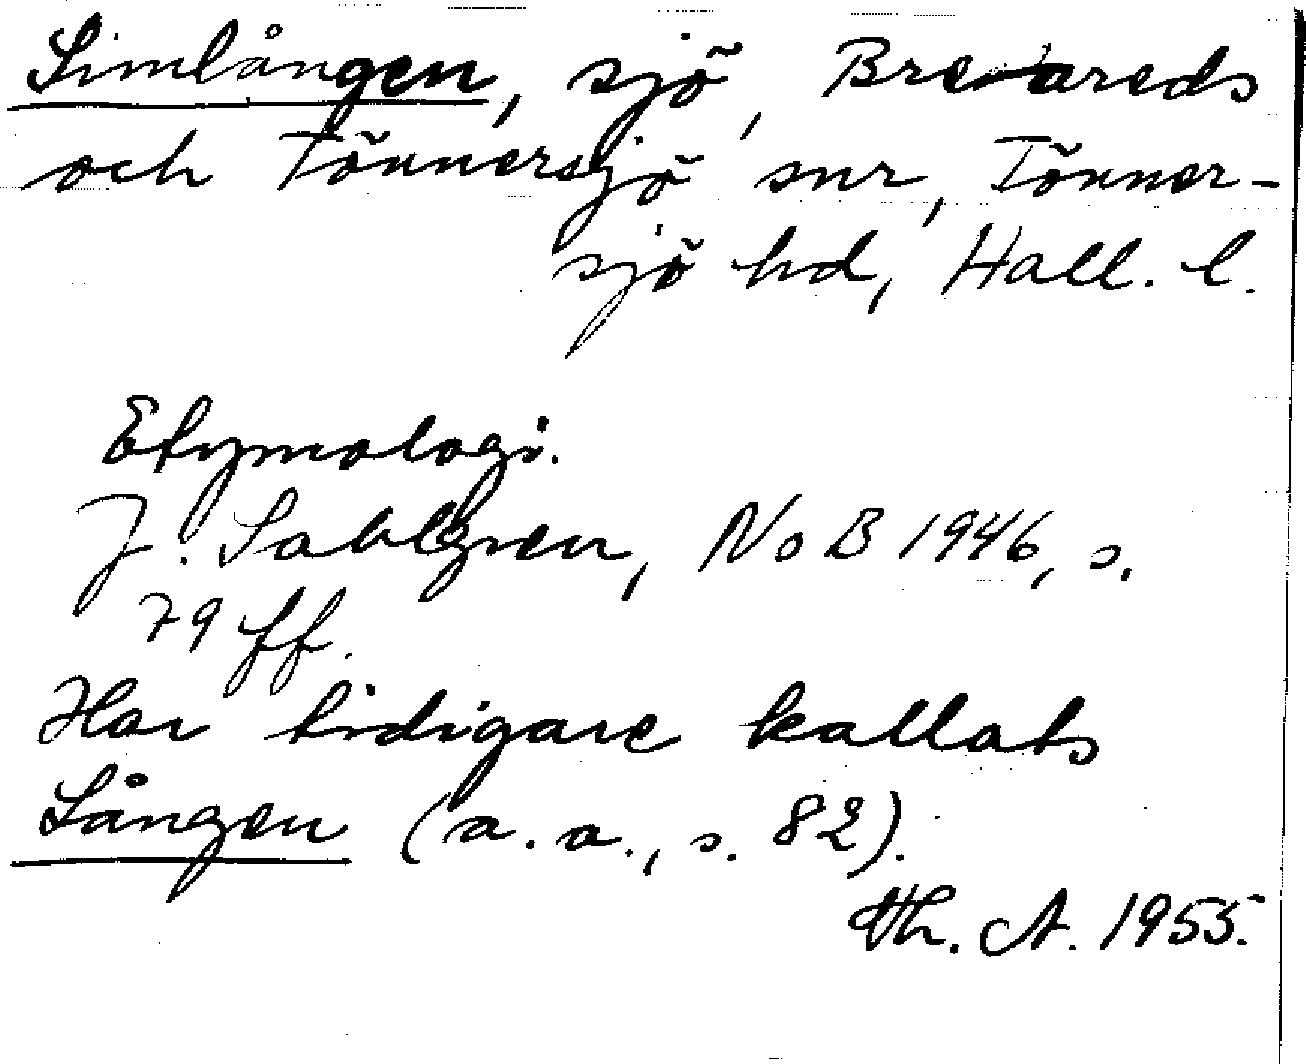 Simlången, sjö, Breareds
och Tönnersjö snr, Tönner-
sjö hd, Hall. l.
Etymologi.
J. Sahlgren, NoB 1946, s.
79 ff.
Har tidigare kallats
Lången (a.a., s. 82).
Th. A. 1955.